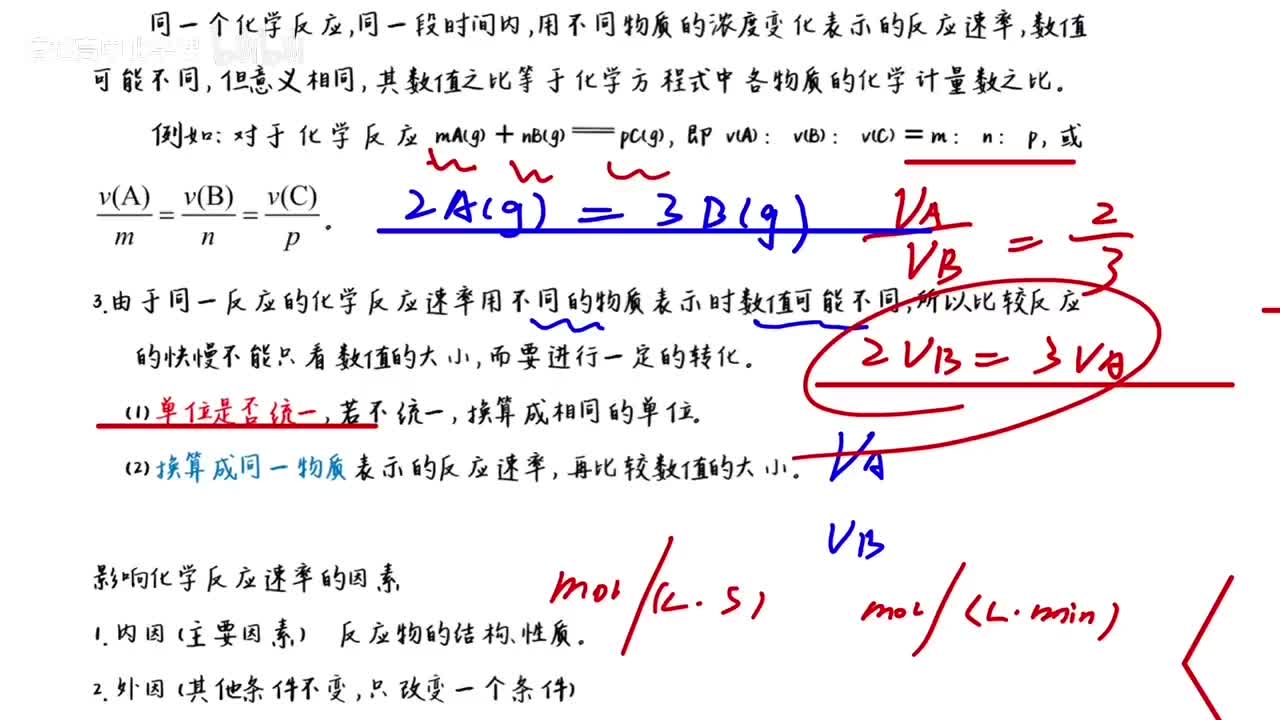 同一个化学反应,同一段时间内,用不同物质的浓度变化表示的反应速率,数值
可能不同,但意义相同,其数值之比等于化学方程式中各物质的化学计量数之比。
例如:对于化学反应 mA(g)+nB(g)══pC(g),即 v(A): v(B): v(C)=m: n: p,或
v(A)/m = v(B)/n = v(C)/p .
2A(g) = 3B(g)
VA/VB = 2/3
3.由于同一反应的化学反应速率用不同的物质表示时数值可能不同,所以比较反应
的快慢不能只看数值的大小,而要进行一定的转化。
2VB = 3VA
(1)单位是否统一,若不统一,换算成相同的单位。
(2)换算成同一物质表示的反应速率,再比较数值的大小。
VA
VB
影响化学反应速率的因素
mol/(L·s)
mol/(L·min)
1.内因(主要因素) 反应物的结构、性质。
2.外因(其他条件不变,只改变一个条件)